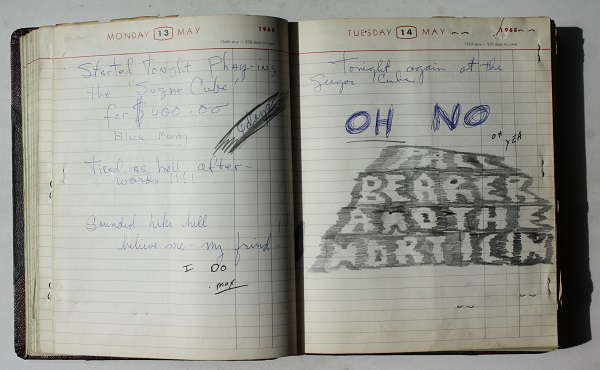 MONDAY 13 MAY 1968
Started Tonight Playing
the Sugar Cube
for $400.00
Black Monday
Tired as hell after-
wards !!!!
Sounded like hell
believe me - my friend
I DO
max
TUESDAY 14 MAY 1968
Tonight again at the
Sugar Cube
OH NO
oh YEA
PALL
BEARER
AND THE
MORTICIAN